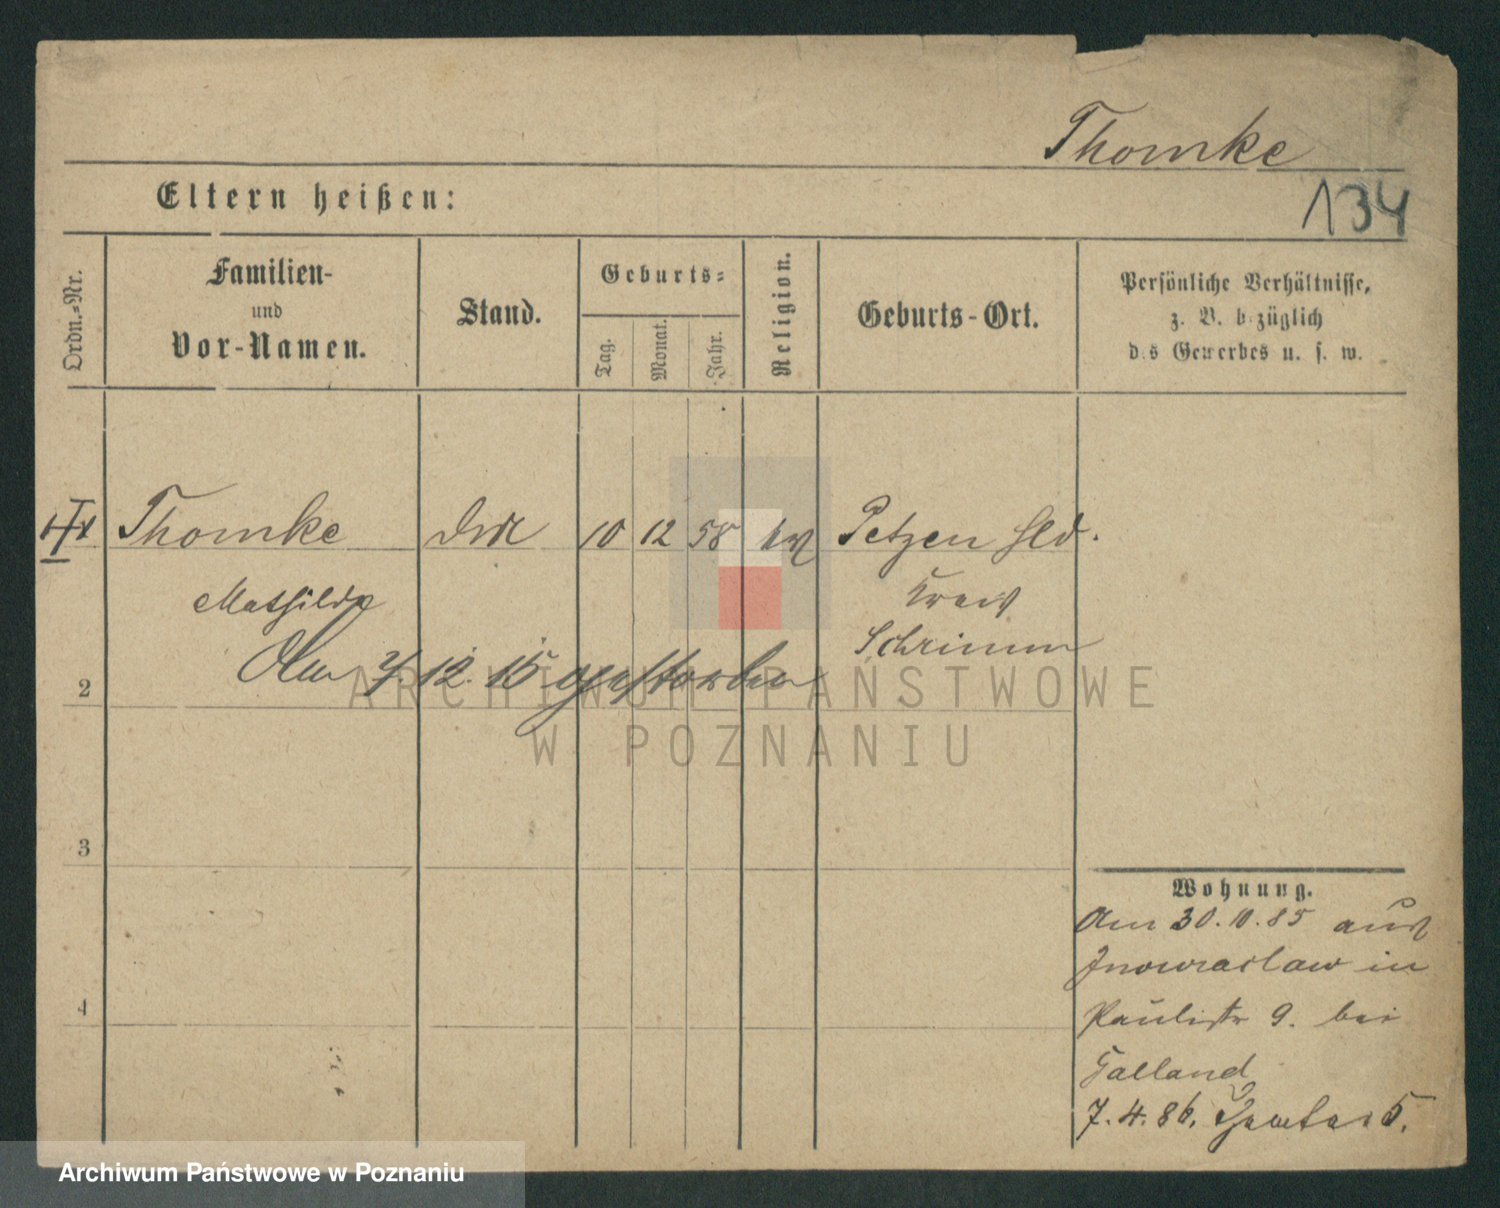 Thomke
134
Eltern heißen:
Ordn.=Nr.
Familien-
und
Vor-Namen.
Stand.
Geburts=
Tag.
Monat.
Jahr.
Religion.
Geburts-Ort.
Persönliche Verhältnisse,
z. B. bezüglich
des Gewerbes u. s. w.
Thomke 10 12 58 Petzen Hld.
Mathilde Kreis
Schrimm
Am 12. 15 gestorben
2
3
4
Wohnung.
Am 30.10.85 aus
Inowraclaw in
Paulistr 9. bei
Galland
7.4.86. 5.
ARCHIWUM PAŃSTWOWE
W POZNANIU
Archiwum Państwowe w Poznaniu